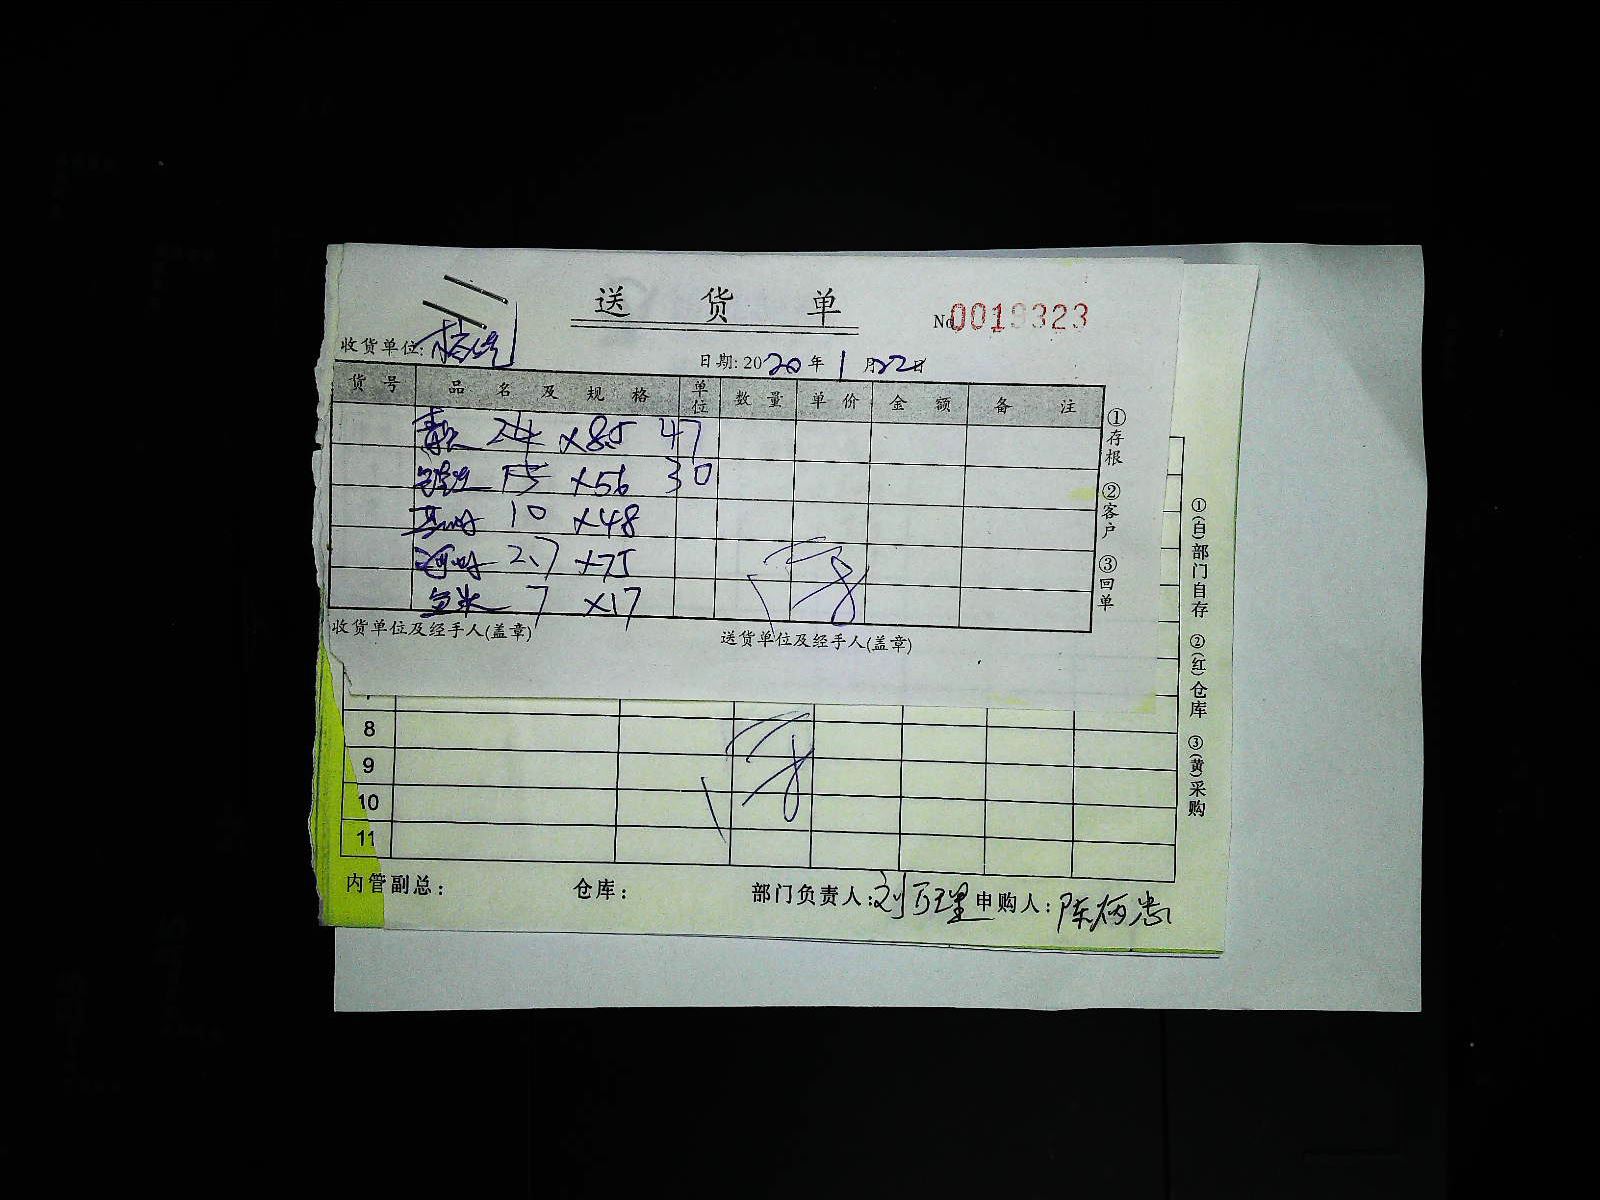 送货单
No 0019323
收货单位:
日期: 2020年1月22日
货号 品名及规格 单位 数量 单价 金额 备注
24 ×85 47
15 ×56 30
10 ×48
河虾 2.7 ×75
7 ×17
收货单位及经手人(盖章)
送货单位及经手人(盖章)
①存根 ②客户 ③回单
8
9
10
11
①(白)部门自存 ②(红)仓库 ③(黄)采购
内管副总: 仓库: 部门负责人: 刘万理 申购人: 陈炳忠